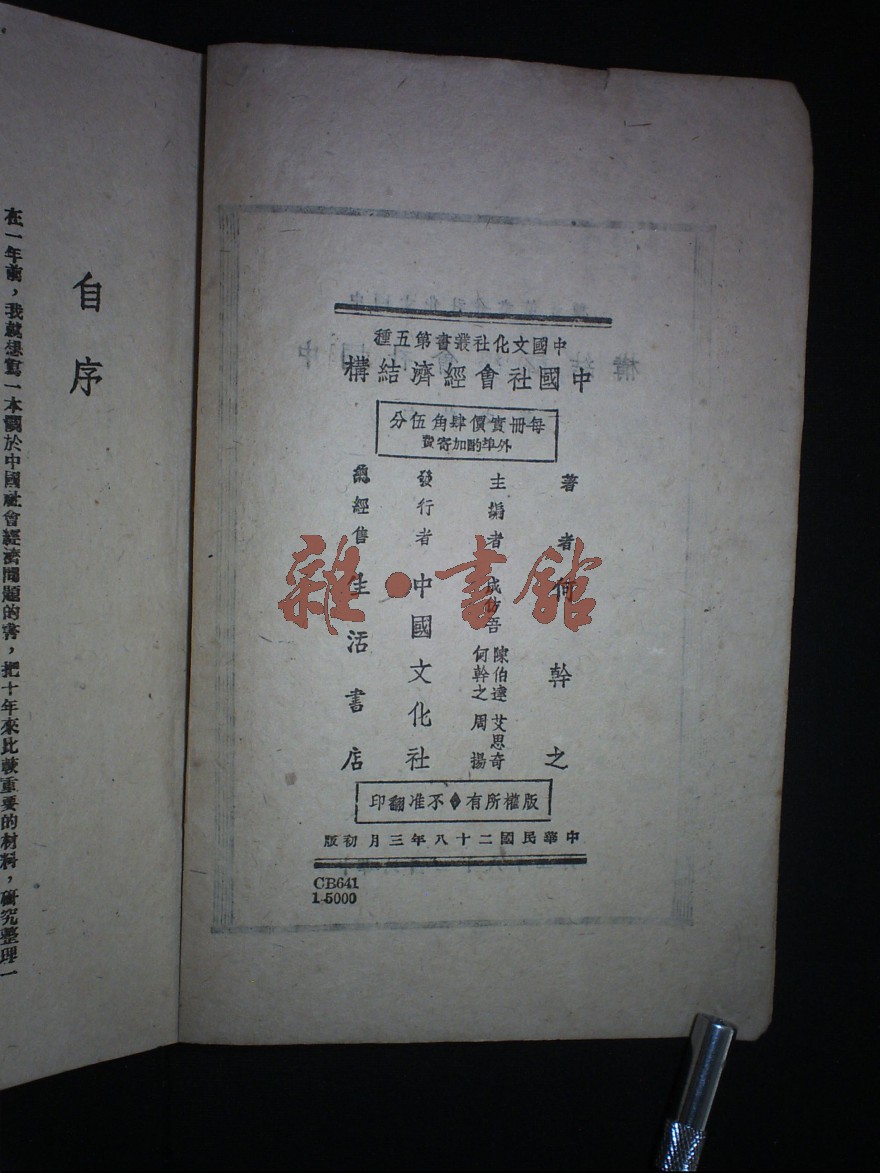 中國文化社叢書第五種
中國社會經濟結構
每冊實價肆角伍分
外埠酌加寄費
著者 何幹之
主編者 成仿吾 陳伯達 艾思奇 何幹之 周揚
發行者 中國文化社
總經售 生活書店
版權所有◆不准翻印
中華民國二十八年三月初版
CB641
1-5000
雜·書館
自序
在一年前，我就想寫一本關於中國社會經濟問題的書，把十年來比較重要的材料，研究整理一